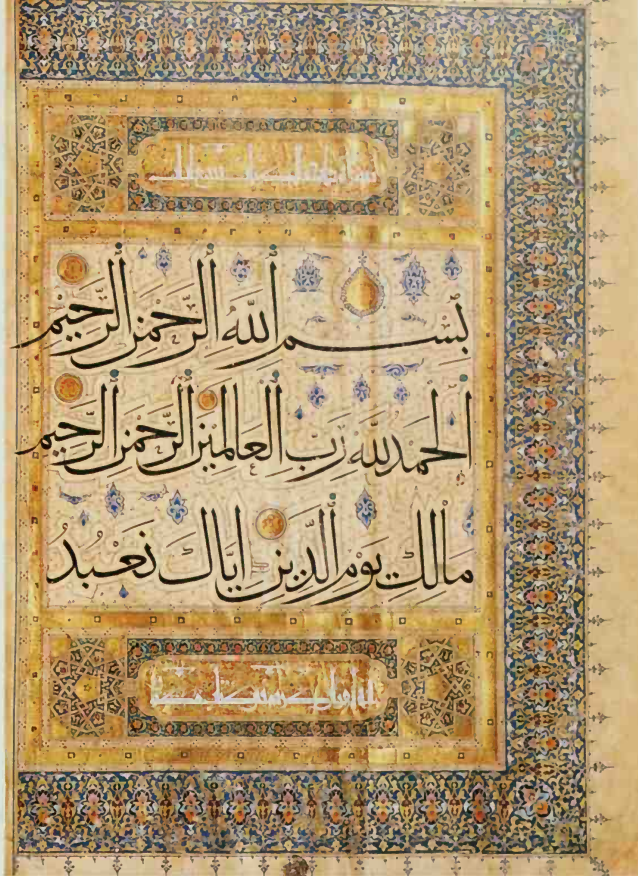 بِسْمِ ٱللَّهِ ٱلرَّحْمٰنِ ٱلرَّحِيْمِ
ٱلْحَمْدُ لِلَّهِ رَبِّ ٱلْعَالَمِيْنَ ٱلرَّحْمٰنِ ٱلرَّحِيْمِ
مَالِكِ يَوْمِ ٱلدِّيْنِ اِيَّاكَ نَعْبُدُ